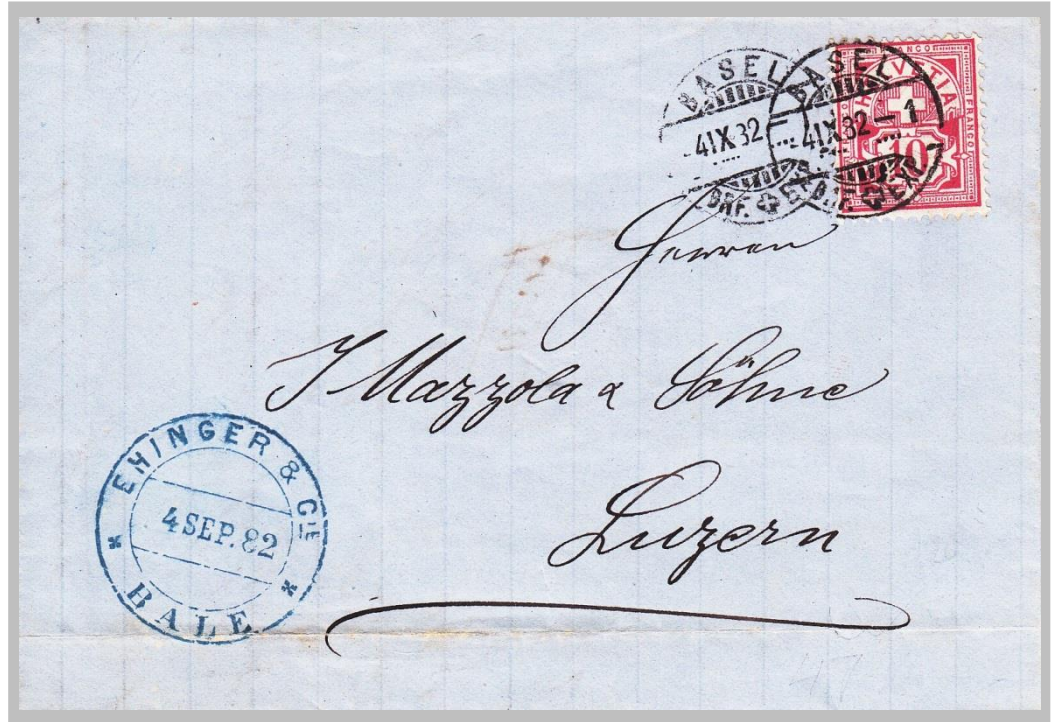 BASEL
4 IX 82
BRF. EXP.
BASEL
4 IX 82 - 1
BRF. EXP.
FRANCO
HELVETIA
FRANCO
10
Herren
J Mazzola & Söhne
Luzern
EHINGER & CIE
4 SEP. 82
BALE